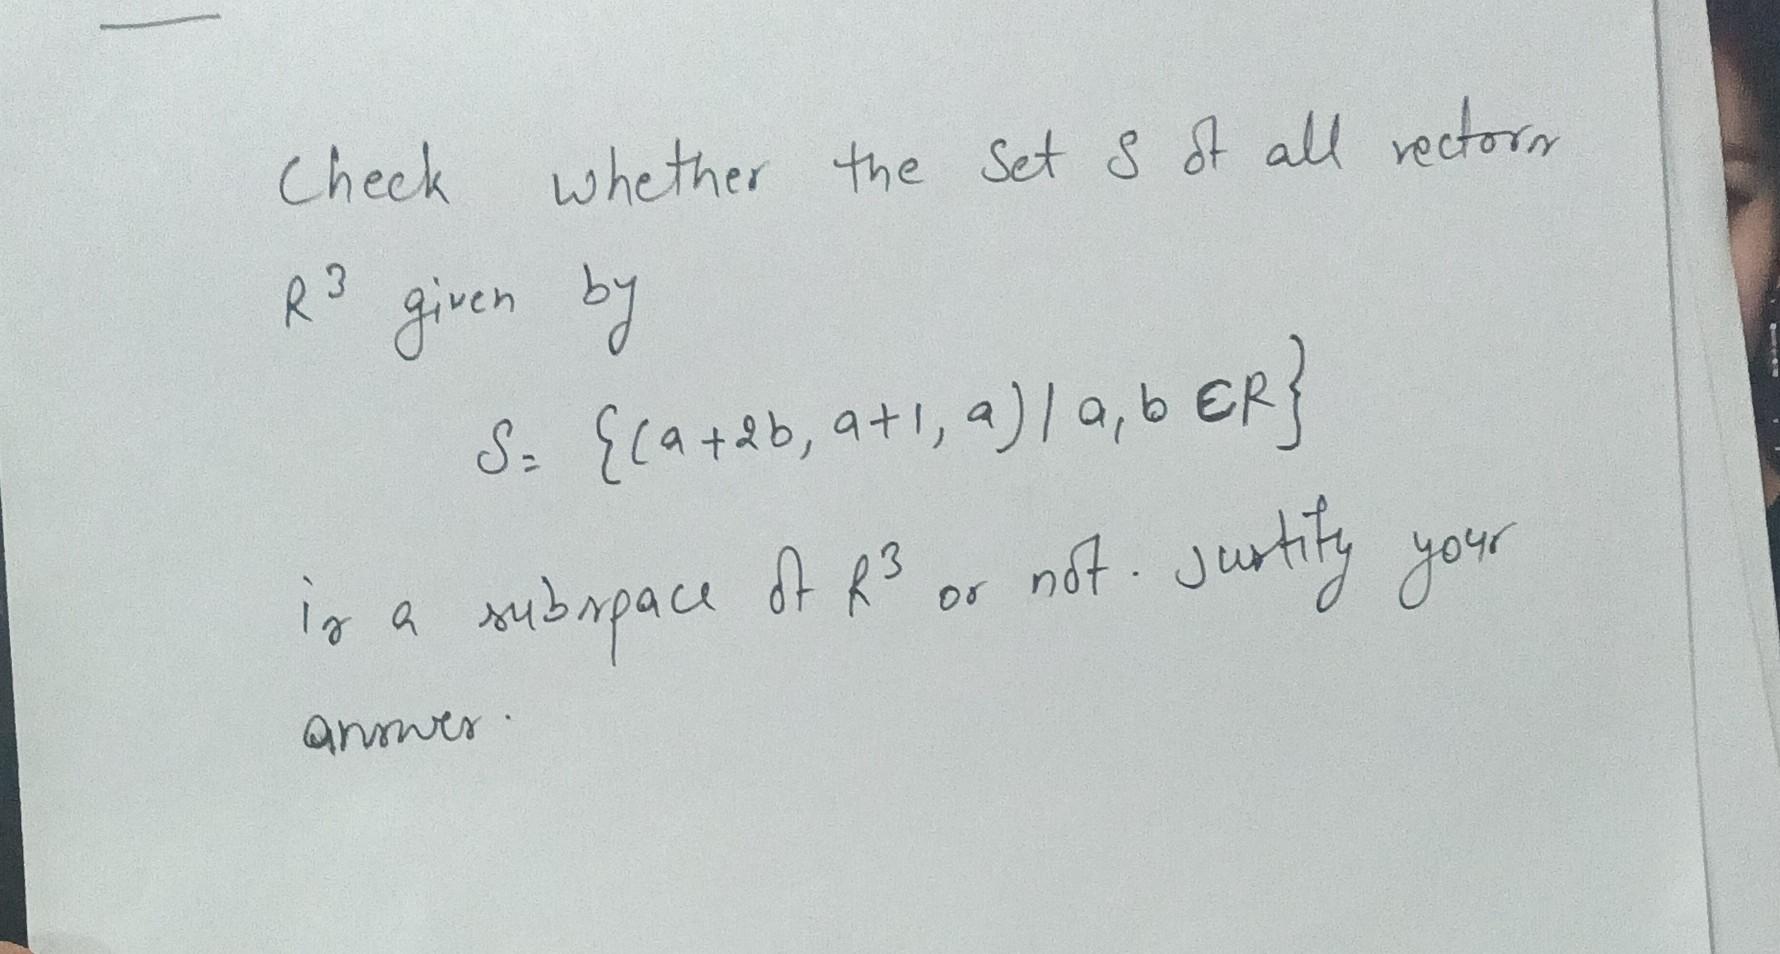 Check whether the Set S of all vectors
R³ given by
S = {(a+2b, a+1, a) | a, b ∈ R}
is a subspace of R³ or not. Justify your
answer.